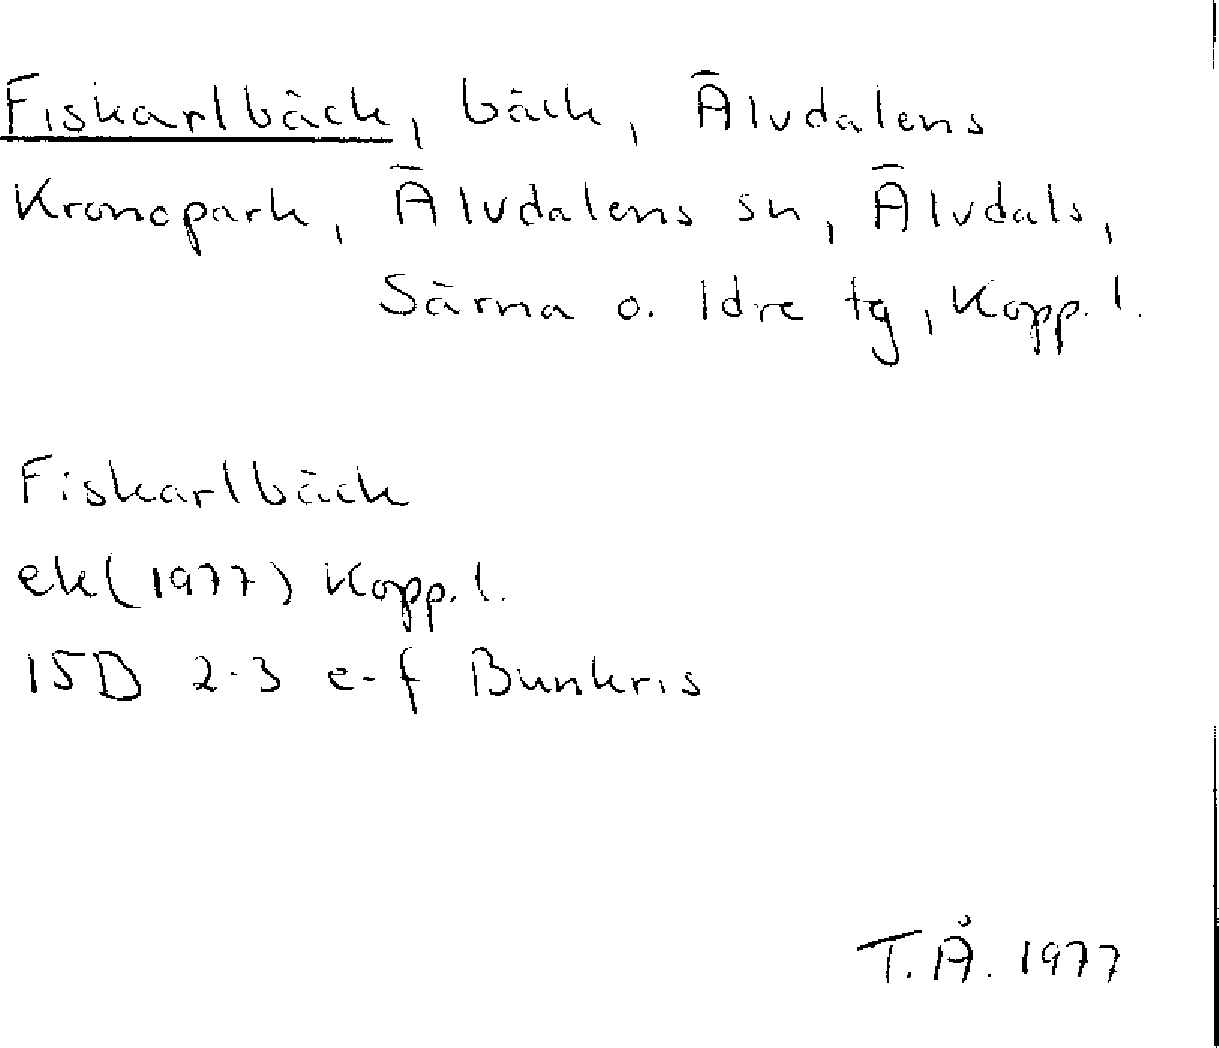 Fiskarlbäck, bäck, Älvdalens
Kronopark, Älvdalens sn, Älvdals,
Särna o. Idre tg, Kopp. l.
Fiskarlbäck
ek (1977) Kopp. l.
15D 2-3 e-f Bunkris
T. Å. 1977